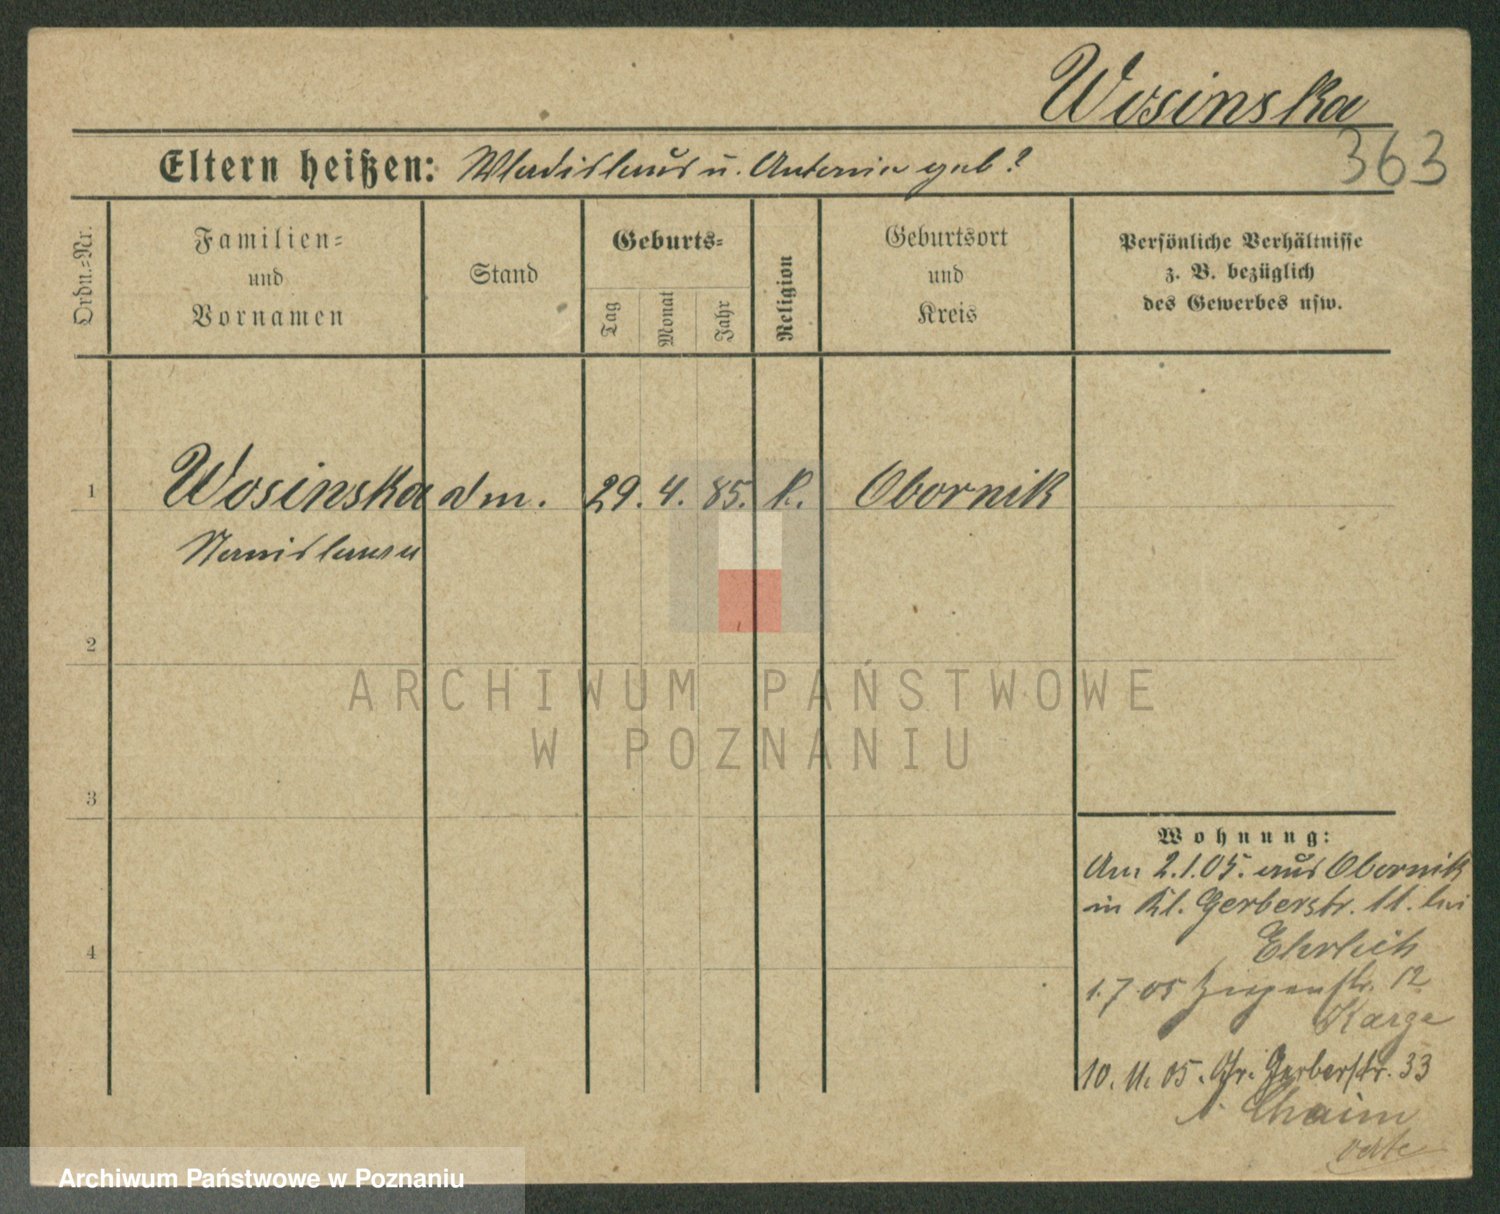 Wosinska
363
Eltern heißen: Wladislaus u. Antonie geb?
Ordn.-Nr.
Familien-
und
Vornamen
Stand
Geburts-
Tag
Monat
Jahr
Religion
Geburtsort
und
Kreis
Persönliche Verhältnisse
z. B. bezüglich
des Gewerbes usw.
1 Wosinska dm. 29. 4. 85. k. Obornik
Stanislawa
2
ARCHIWUM PAŃSTWOWE
W POZNANIU
3
Wohnung:
Am 2.1.05. aus Obornik
in Kl. Gerberstr. 11. bei
Ehrlich
4
1.7.05 Ziegenstr. 12
Karge
10. 11. 05. Gr. Gerberstr. 33
Chaim
Archiwum Państwowe w Poznaniu